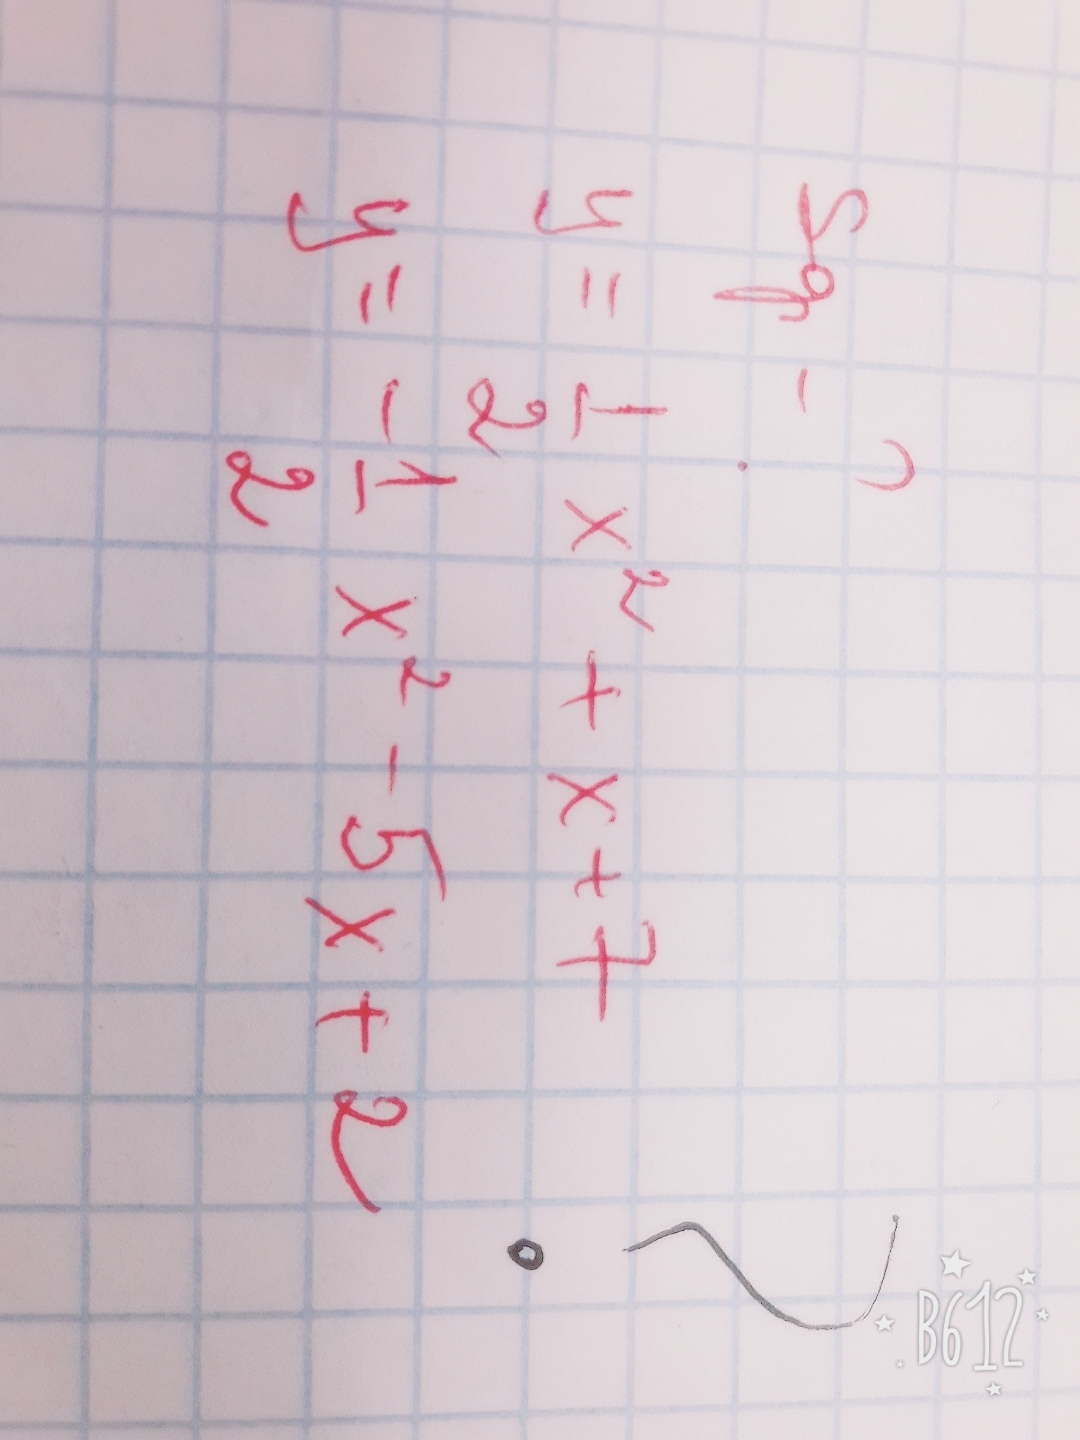 Sф - ?
y = 1/2 x² + x + 7
y = - 1/2 x² - 5x + 2
B612